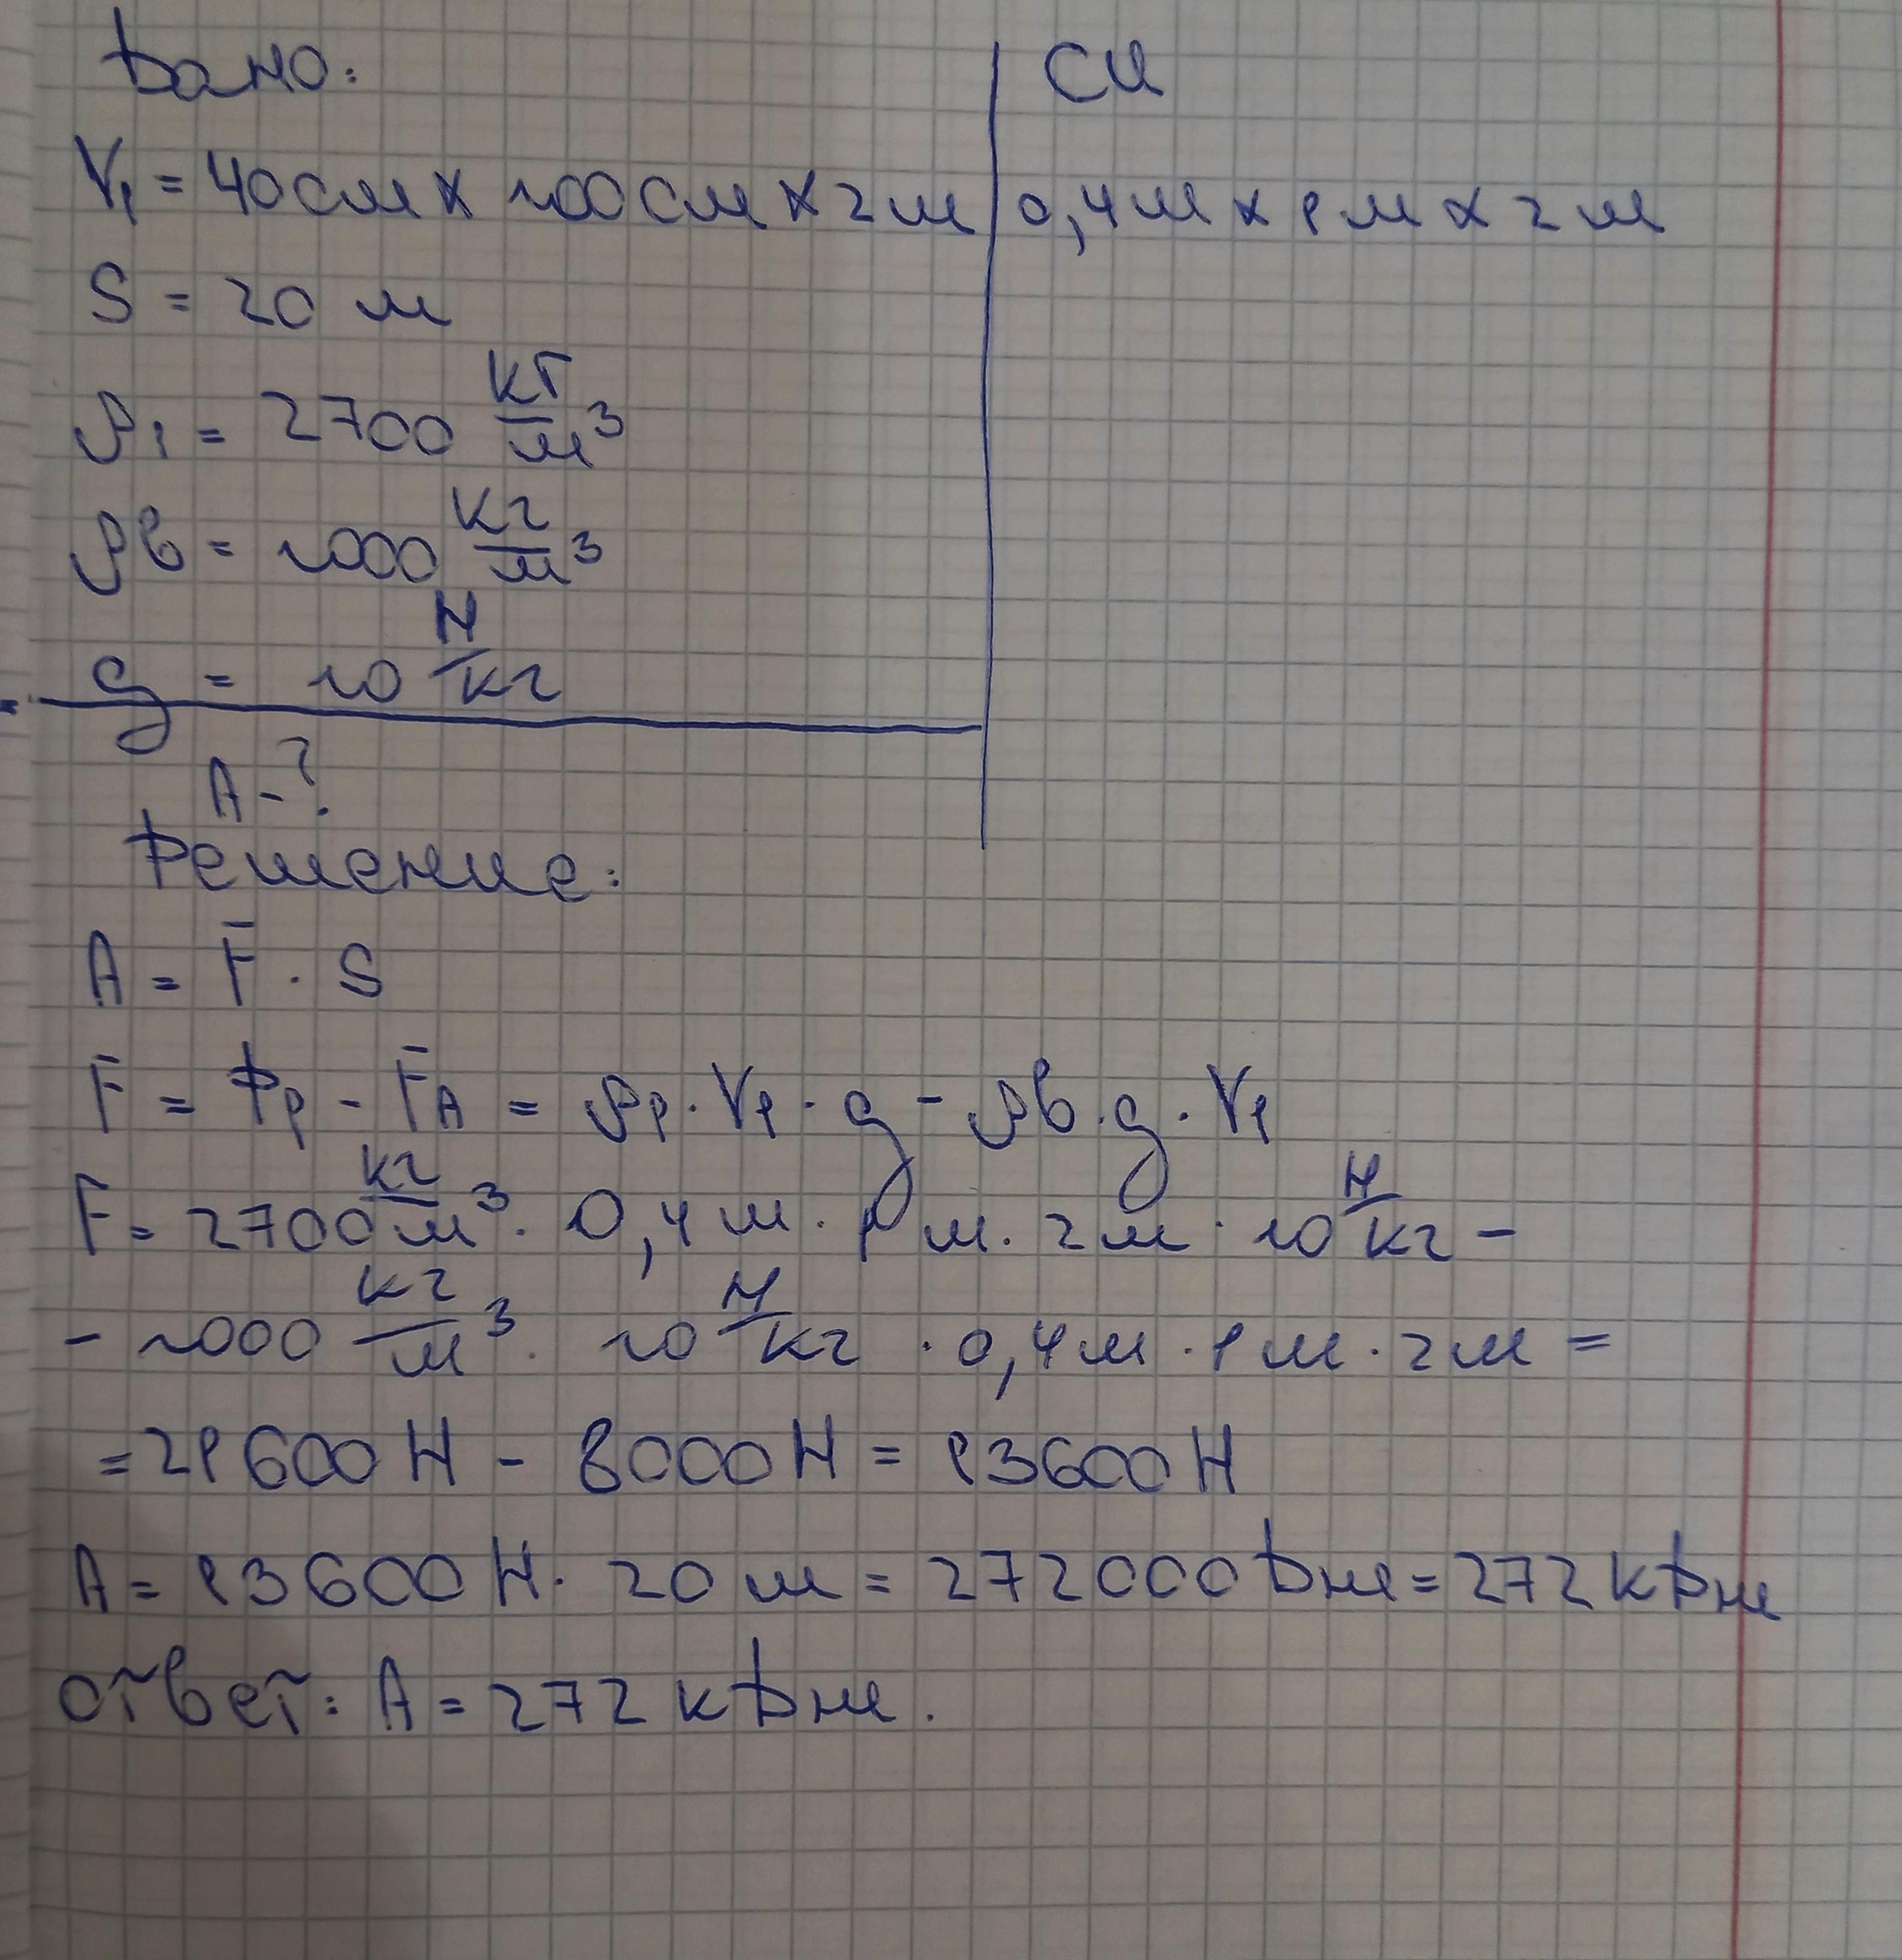 Дано:
СИ
V₁ = 40 см x 100 см x 2 м
0,4 м x 1 м x 2 м
S = 20 м
ρ₁ = 2700 кг/м³
ρв = 1000 кг/м³
g = 10 Н/кг
A - ?
Решение:
A = F · S
F = P₁ - Fᴀ = ρ₁ · V₁ · g - ρв · g · V₁
F = 2700 кг/м³ · 0,4 м · 1 м · 2 м · 10 Н/кг -
- 1000 кг/м³ · 10 Н/кг · 0,4 м · 1 м · 2 м =
= 21600 Н - 8000 Н = 13600 Н
A = 13600 Н · 20 м = 272000 Дж = 272 кДж
ответ: A = 272 кДж.